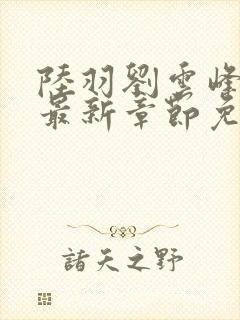 陸羽劉雲峰
最新章節免
諸天之野